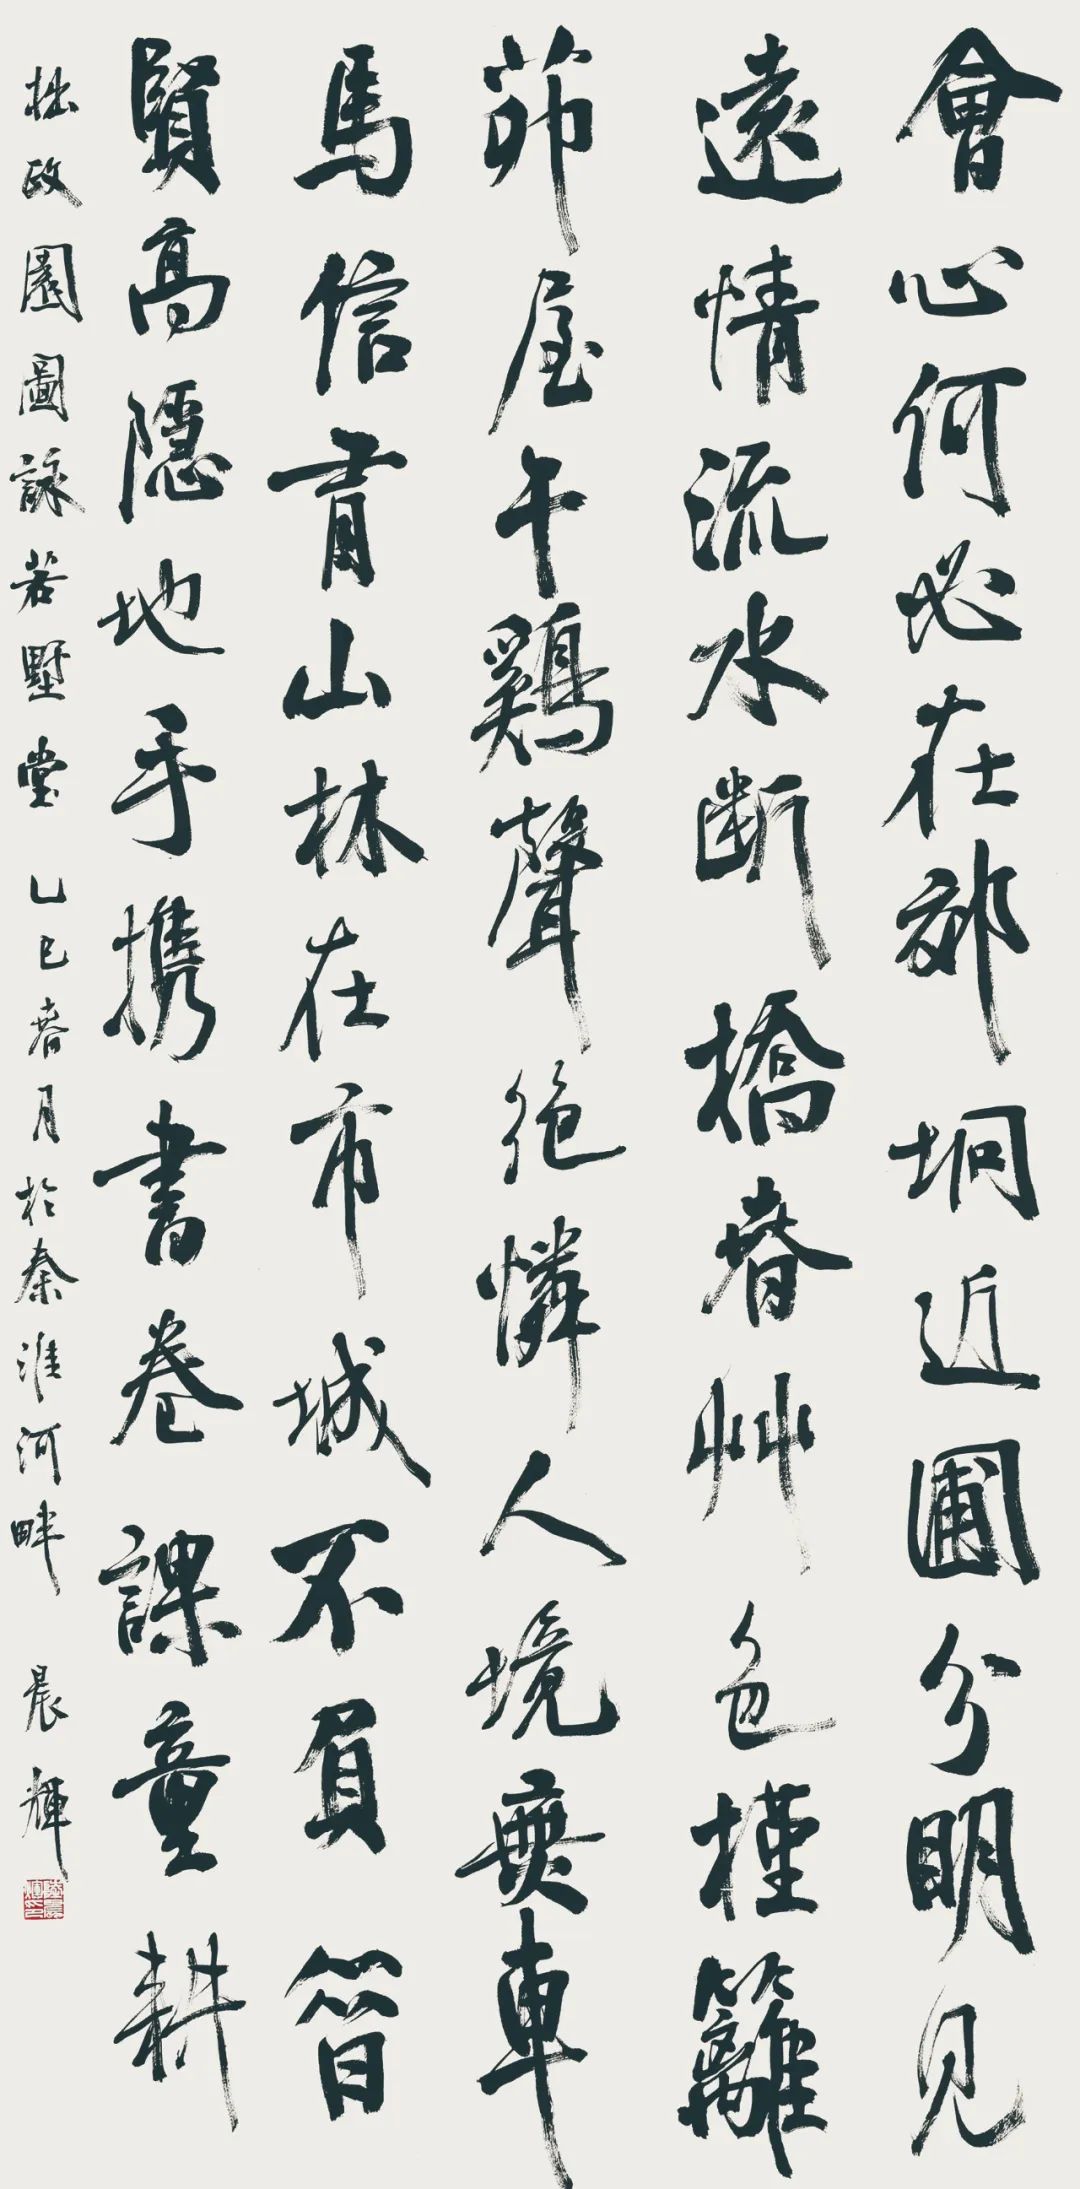 會心何必在郊坰近圃分明見
遠情流水斷橋春艸色槿籬
茆屋午鷄聲絶憐人境無車
馬信有山林在市城不負昔
賢高隱地手携書卷課童耕
拙政園圖詠若墅堂 乙巳春月於秦淮河畔 晨輝